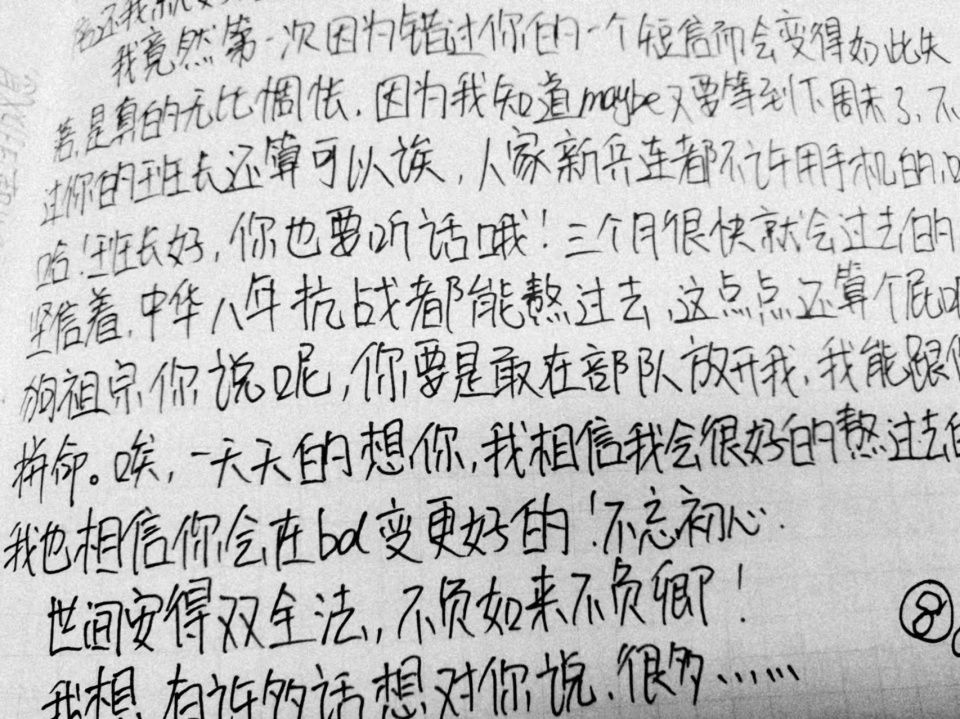 我竟然第一次因为错过你的一个短信而会变得如此失
若,是真的无比惆怅,因为我知道maybe又要等到下周末了,不
过你的班长还算可以诶,人家新兵连都不许用手机的,
哈!班长好,你也要听话哦!三个月很快就会过去的
坚信着,中华八年抗战都能熬过去,这点点还算个屁
狗祖宗,你说呢,你要是敢在部队放开我,我能跟你
拼命。唉,一天天的想你,我相信我会很好的熬过去的
我也相信你会在bd变更好的!不忘初心.
世间安得双全法,不负如来不负卿!
我想,有许多话想对你说,很多......
8